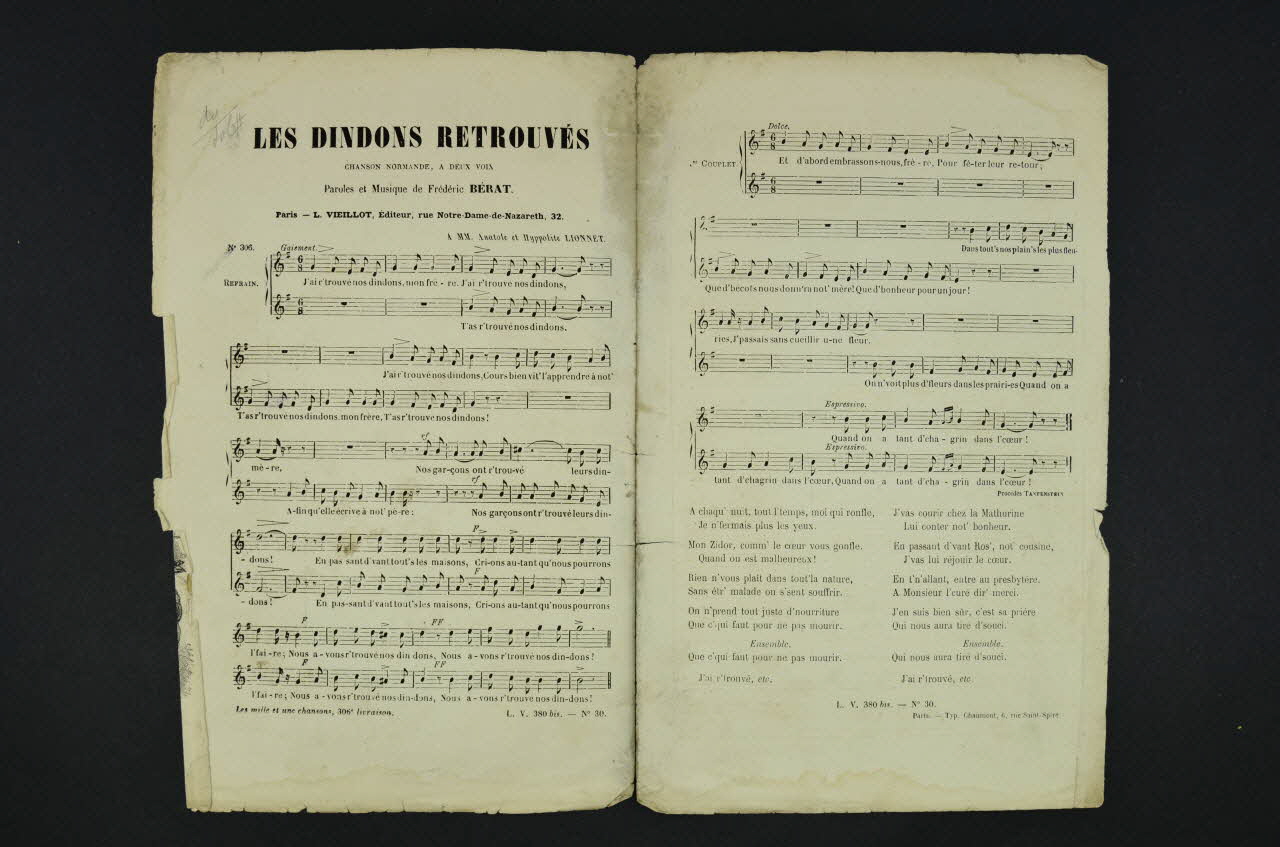 LES DINDONS RETROUVÉS
CHANSON NORMANDE, A DEUX VOIX
Paroles et Musique de Frédéric BÉRAT.
Paris — L. VIEILLOT, Éditeur, rue Notre-Dame-de-Nazareth, 32.
A MM. Anatole et Hyppolite LIONNET.
N° 306.
Gaiement.
REFRAIN.
J'ai r'trouvé nos dindons, mon frè - re. J'ai r'trouvé nos dindons,
T'as r'trouvé nos dindons.
J'ai r'trouvé nos dindons, Cours bien vit' l'apprendre à not'
T'as r'trouvé nos dindons mon frère, T'as r'trouvé nos dindons!
rf
mè - re, Nos gar-çons ont r'trou-vé leurs din-
rf
A-fin qu'elle écrive à not' pè-re: Nos garçons ont r'trouvé leurs din-
F
- dons! En pas sant d'vant tout's les maisons, Cri-ons au-tant qu'nous pourrons
F
- dons! En pas-sant d'vant tout's les maisons, Cri-ons au-tant qu'nous pourrons
F FF
l'fai - re; Nous a - vons r'trouvé nos din dons, Nous a - vons r'trouvé nos din-dons!
F FF
l'fai - re; Nous a - vons r'trouvé nos din-dons, Nous a - vons r'trouvé nos din-dons!
Les mille et une chansons, 306e livraison. L. V. 380 bis. — N° 30.
Dolce.
COUPLET
Et d'abord embrassons-nous, frè - re, Pour fê-ter leur re-tour;
Dans tout's nos plain's les plus fleu-
Que d'bécots nous donn'ra not' mère! Que d'bonheur pour un jour!
ries, J'passais sans cueillir u-ne fleur.
On n'voit plus d'fleurs dans les prairi-es Quand on a
Espressivo.
Quand on a tant d'cha - grin dans l'cœur!
Espressivo.
tant d'chagrin dans l'cœur, Quand on a tant d'cha - grin dans l'cœur!
Procédés TANTENSTEIN
A chaqu' nuit, tout l'temps, moi qui ronfle,
Je n'fermais plus les yeux.
Mon Zidor, comm' le cœur vous gonfle,
Quand on est malheureux!
Rien n'vous plaît dans tout'la nature,
Sans êtr' malade on s'sent souffrir.
On n'prend tout juste d'nourriture
Que c'qui faut pour ne pas mourir.
Ensemble.
Que c'qui faut pour ne pas mourir.
J'ai r'trouvé, etc.
J'vas courir chez la Mathurine
Lui conter not' bonheur.
En passant d'vant Ros', not' cousine,
J'vas lui réjouir le cœur.
En t'n'allant, entre au presbytère.
A Monsieur l'curé dir' merci.
J'en suis bien sûr, c'est sa prière
Qui nous aura tiré d'souci.
Ensemble.
Qui nous aura tiré d'souci.
J'ai r'trouvé, etc.
L. V. 380 bis. — N° 30.
Paris. — Typ. Chaumont, 6, rue Saint-Spire